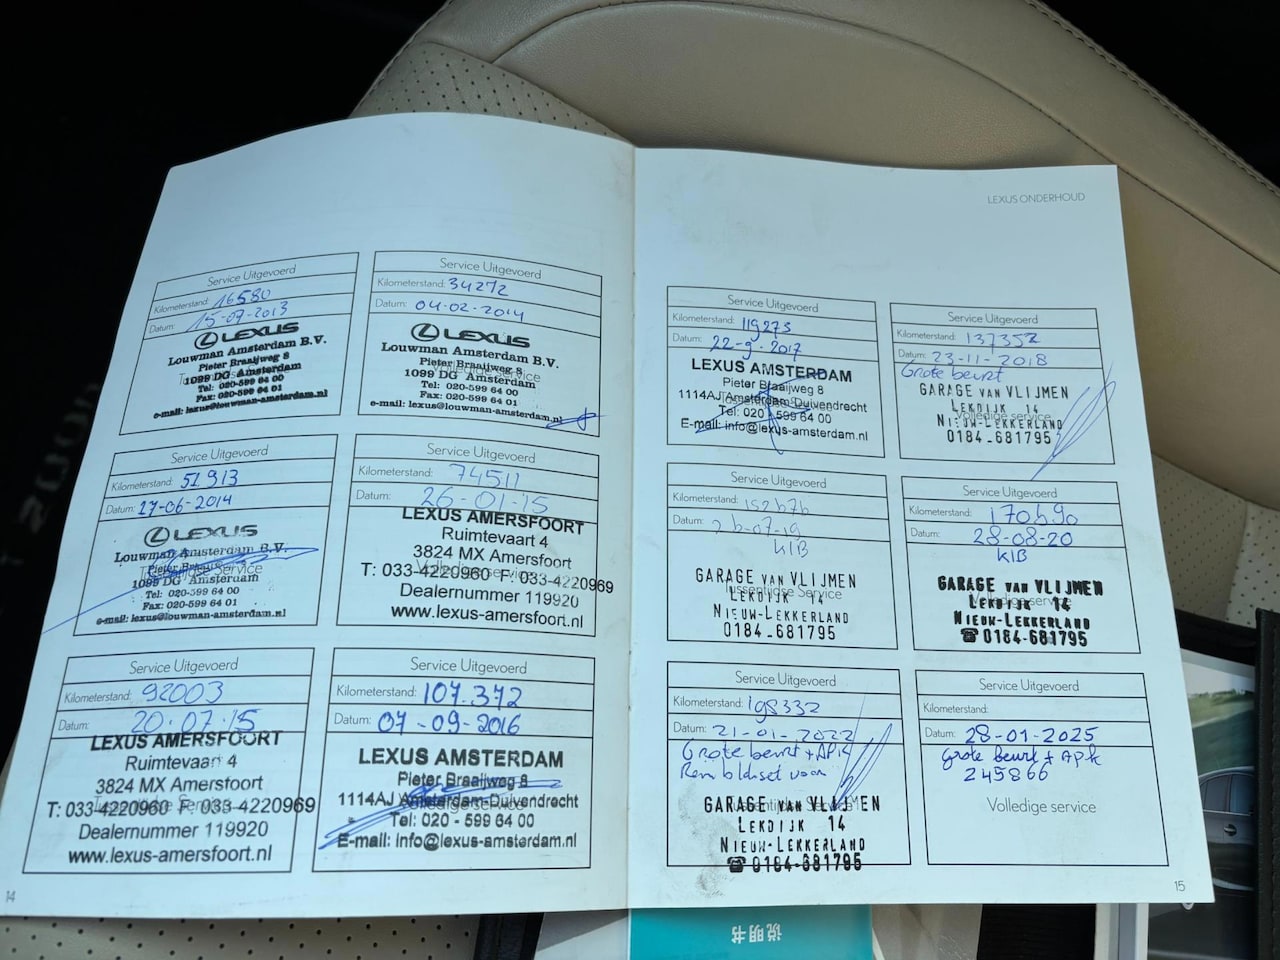 Service Uitgevoerd
Kilometerstand: 16580
Datum: 15-07-2013
LEXUS
Louwman Amsterdam B.V.
Pieter Braaijweg 8
1099 DG Amsterdam
Tel: 020-599 64 00
Fax: 020-599 64 01
e-mail: lexus@louwman-amsterdam.nl
Service Uitgevoerd
Kilometerstand: 34272
Datum: 04-02-2014
LEXUS
Louwman Amsterdam B.V.
Pieter Braaijweg 8
Volledige service
1099 DG Amsterdam
Tel: 020-599 64 00
Fax: 020-599 64 01
e-mail: lexus@louwman-amsterdam.nl
Service Uitgevoerd
Kilometerstand: 51.913
Datum: 27-06-2014
LEXUS
Louwman Amsterdam B.V.
Pieter
Tussentijdse Service
1099 DG Amsterdam
Tel: 020-599 64 00
Fax: 020-599 64 01
e-mail: lexus@louwman-amsterdam.nl
Service Uitgevoerd
Kilometerstand: 74511
Datum: 26-01-15
LEXUS AMERSFOORT
Ruimtevaart 4
3824 MX Amersfoort
T: 033-4220960 F: 033-4220969
Dealernummer 119920
www.lexus-amersfoort.nl
Service Uitgevoerd
Kilometerstand: 92003
Datum: 20-07-15
LEXUS AMERSFOORT
Ruimtevaart 4
3824 MX Amersfoort
T: 033-4220960 F: 033-4220969
Dealernummer 119920
www.lexus-amersfoort.nl
Service Uitgevoerd
Kilometerstand: 107.372
Datum: 07-09-2016
LEXUS AMSTERDAM
Pieter Braaijweg 8
1114AJ Amsterdam-Duivendrecht
Volledige service
Tel: 020 - 599 64 00
E-mail: info@lexus-amsterdam.nl
14
LEXUS ONDERHOUD
Service Uitgevoerd
Kilometerstand: 119275
Datum: 22-9-2017
LEXUS AMSTERDAM
Pieter Braaijweg 8
1114AJ Amsterdam-Duivendrecht
Tel: 020 - 599 64 00
E-mail: info@lexus-amsterdam.nl
Service Uitgevoerd
Kilometerstand: 137352
Datum: 23-11-2018
Grote beurt
GARAGE VAN VLIJMEN
LEKDIJK 14
Volledige service
NIEUW-LEKKERLAND
0184-681795
Service Uitgevoerd
Kilometerstand:
Datum:
KIB
GARAGE VAN VLIJMEN
Tussentijdse Service
LEKDIJK 14
NIEUW-LEKKERLAND
0184-681795
Service Uitgevoerd
Kilometerstand: 170690
Datum: 28-08-20
KIB
GARAGE VAN VLIJMEN
Volledige service
LEKDIJK 14
NIEUW-LEKKERLAND
☎ 0184-681795
Service Uitgevoerd
Kilometerstand: 198332
Datum: 21-01-2022
Grote beurt + APK
Remblokset voor
GARAGE VAN VLIJMEN
LEKDIJK 14
NIEUW-LEKKERLAND
☎ 0184-681795
Service Uitgevoerd
Kilometerstand:
Datum: 28-01-2025
Grote beurt + APK
245866
Volledige service
15
说明书